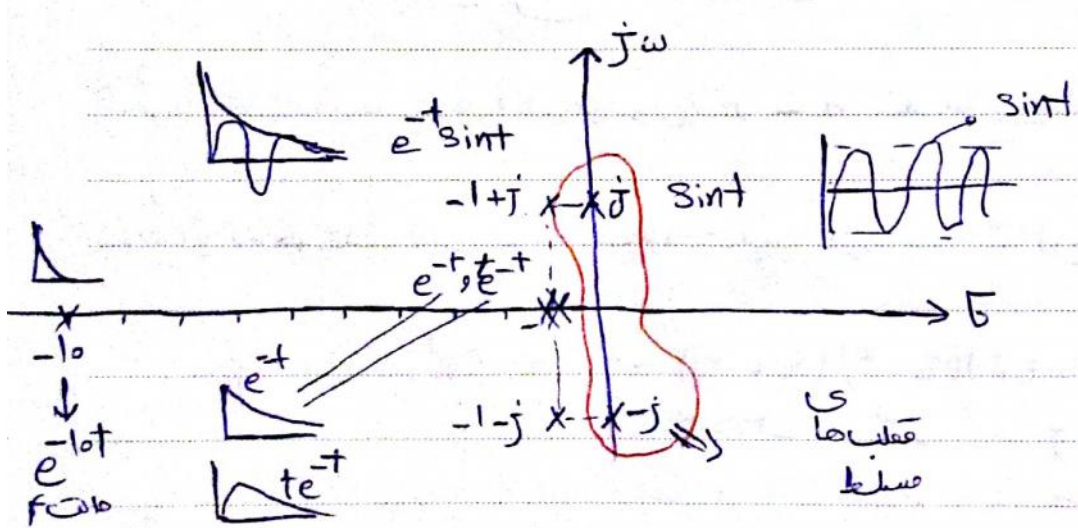 jω
sint
e^-t sint
-1+j
j
sint
e^-t, te^-t
σ
-10
e^-t
-1-j
-j
قطب‌های
مسلط
e^-10t
te^-t